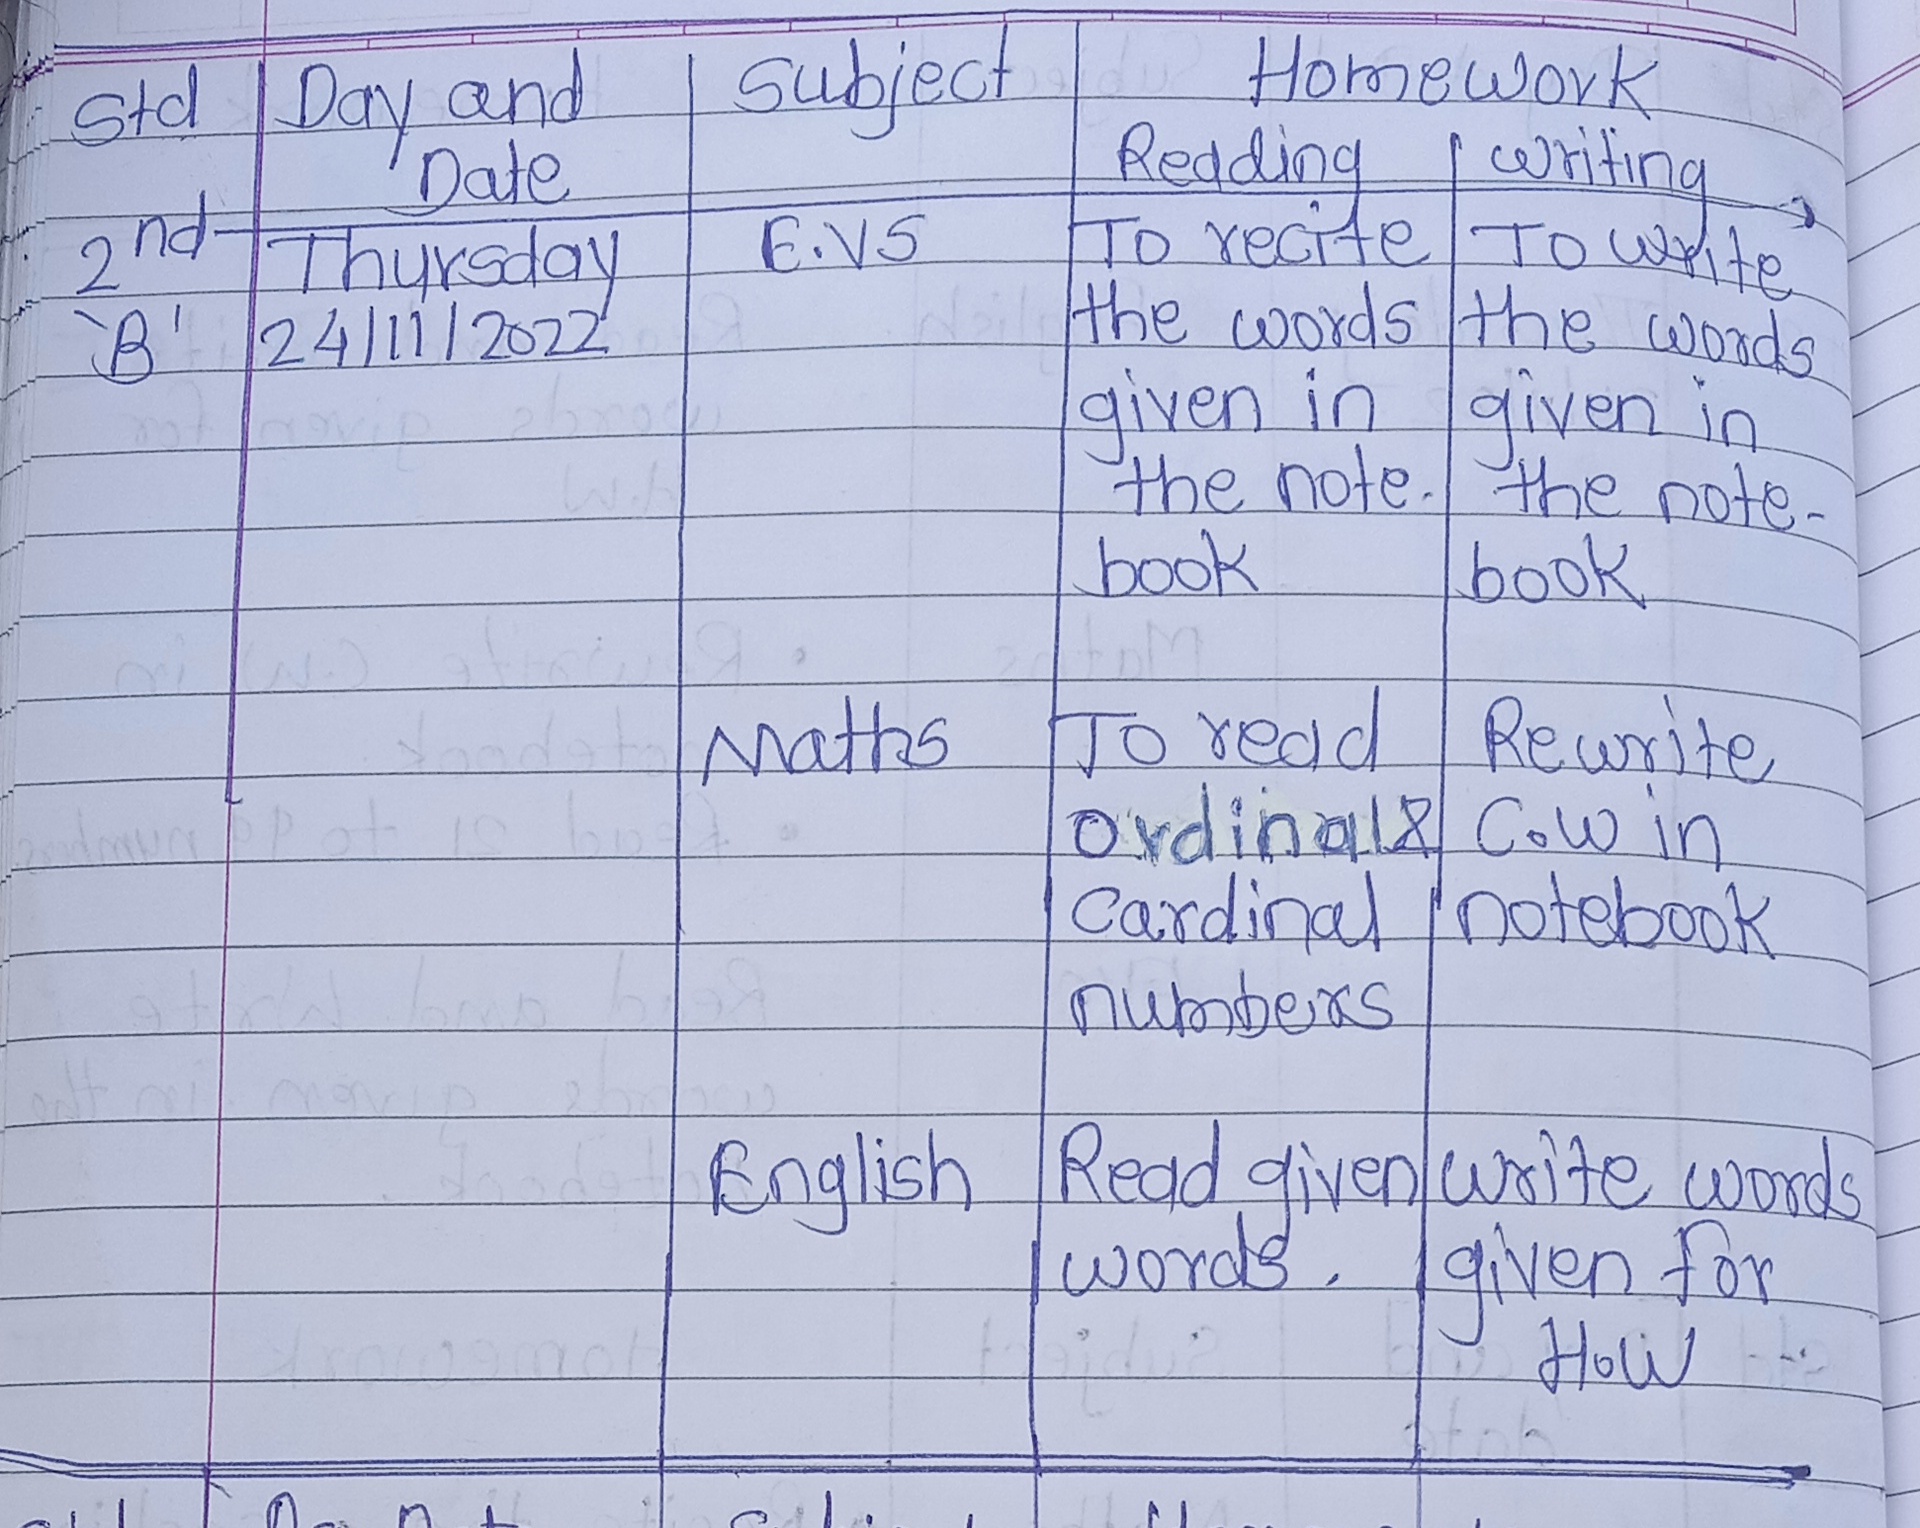 Std Day and Subject Homework
Date Reading Writing
2nd Thursday E.VS To recite To write
'B' 24/11/2022 the words the words
given in given in
the note- the note-
book book
Maths To read Rewrite
Ordinal & C.W in
Cardinal notebook
numbers
English Read given write words
words. given for
H.W